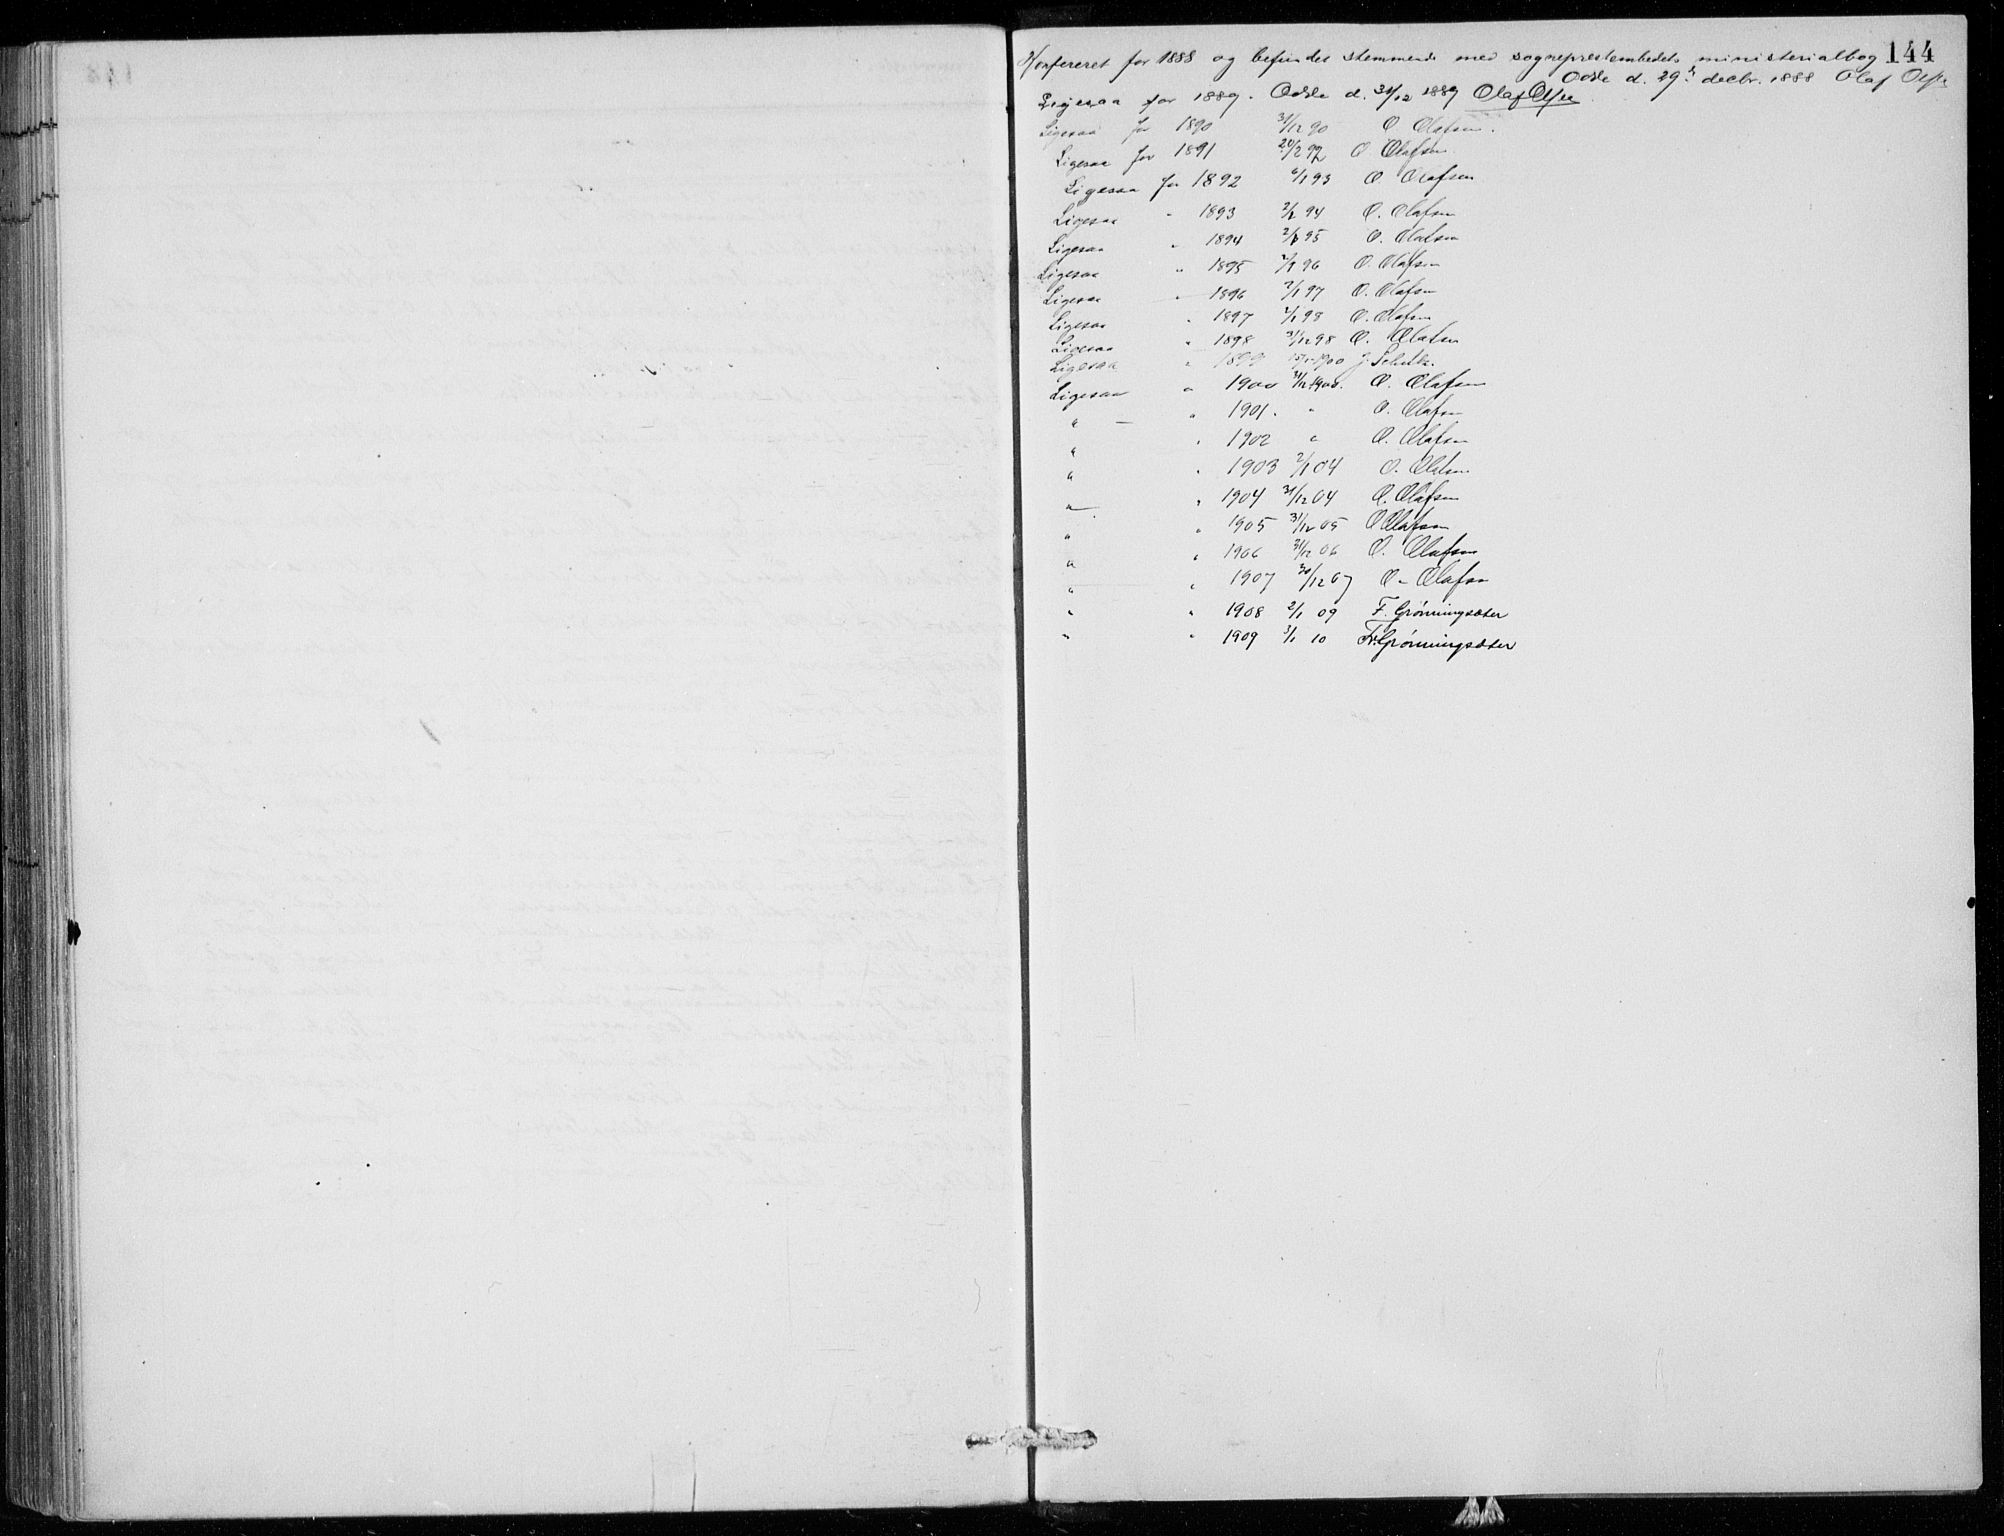 144
Konfereret for 1888 og befindes stemmende med sogneprestembedets ministerialbog
Odde d. 29 decbr. 1888 Olaf Olafsen
Ligesaa for 1889. Odde d. 31/12 1889 Olaf Olafsen
Ligesaa for 1890 31/12 90 O. Olafsen.
Ligesaa for 1891 20/2 92 O. Olafsen
Ligesaa for 1892 6/1 93 O. Olafsen
Ligesaa " 1893 2/2 94 O. Olafsen
Ligesaa " 1894 2/1 95 O. Olafsen
Ligesaa " 1895 2/1 96 O. Olafsen
Ligesaa " 1896 2/1 97 O. Olafsen
Ligesaa " 1897 2/1 98 O. Olafsen
Ligesaa " 1898 31/12 98 O. Olafsen
Ligesaa " 1899 15/1 1900 J.
Ligesaa " 1900 31/12 1900. O. Olafsen
" — " 1901. " O. Olafsen
" " 1902 " O. Olafsen
" " 1903 2/1 04 O. Olafsen
" " 1904 31/12 04 O. Olafsen
" " 1905 31/12 05 O Olafsen
" " 1906 31/12 06 O. Olafsen
" " 1907 30/12 07 O. Olafsen
" " 1908 2/1 09 F. Grönningsæter
" " 1909 3/1 10 Fr. Grönningsæter